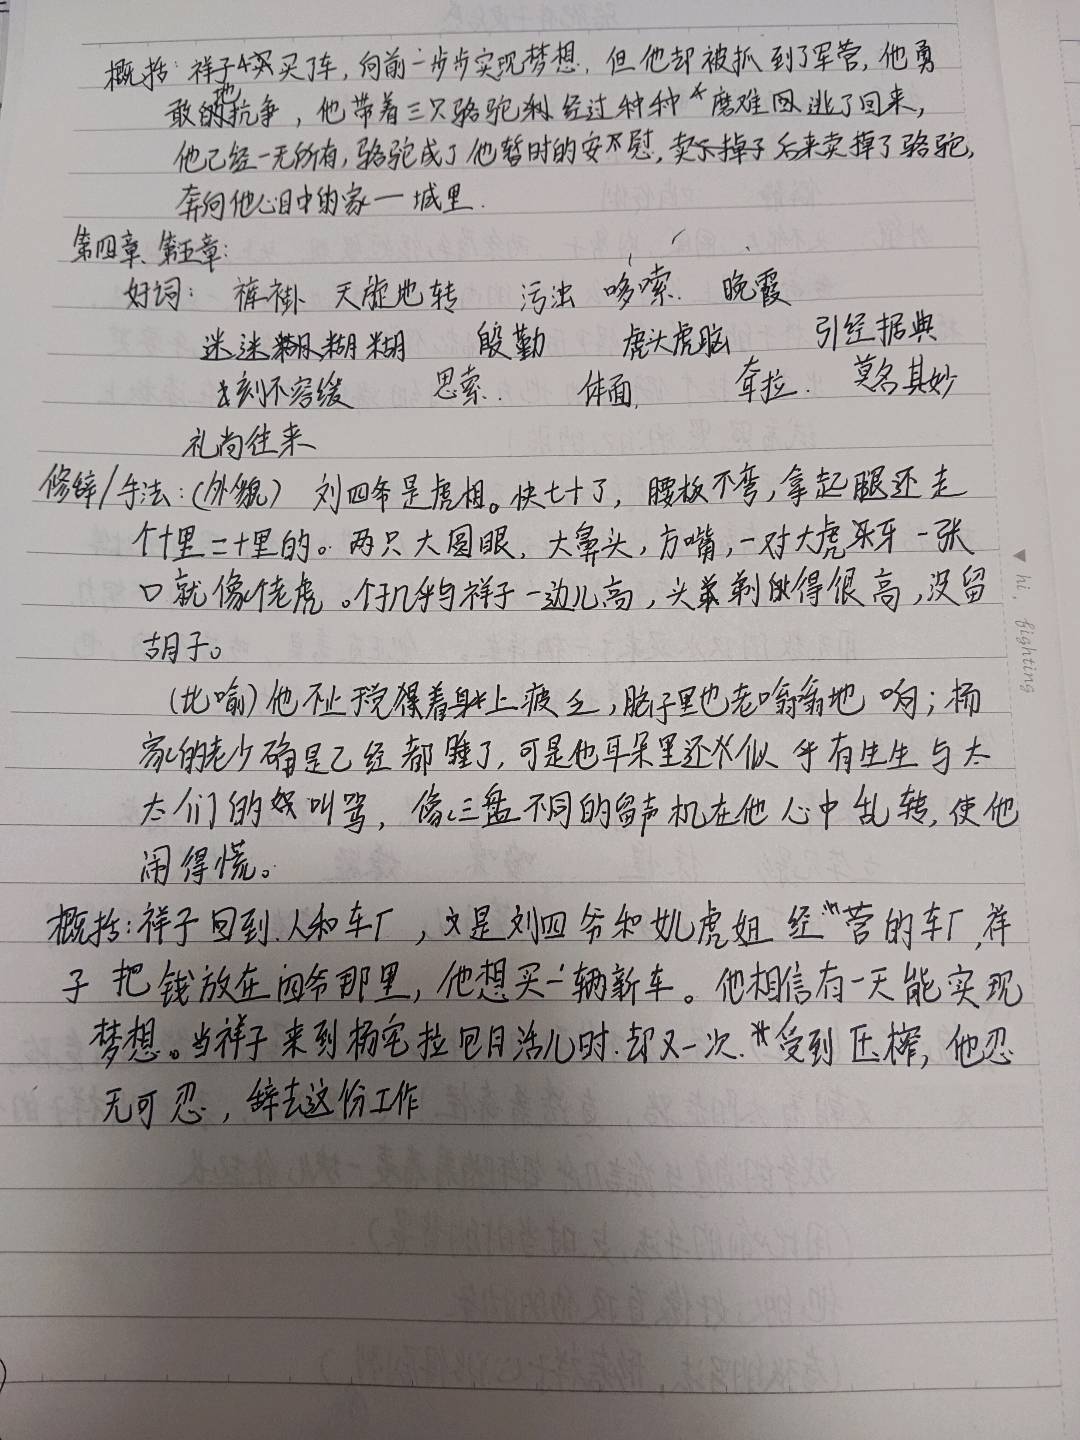 概括：祥子买了车，向前一步步实现梦想，但他却被抓到了军营，他勇
敢地抗争，他带着三只骆驼经过种种磨难逃了回来，
他已经一无所有，骆驼成了他暂时的安慰，后来卖掉了骆驼，
奔向他心目中的家一城里．
第四章、第五章：
好词： 裤褂 天旋地转 污浊 哆嗦． 晚霞
迷迷糊糊 殷勤 虎头虎脑 引经据典
刻不容缓 思索． 体面． 耷拉． 莫名其妙
礼尚往来
修辞/手法：（外貌） 刘四爷是虎相。快七十了，腰板不弯，拿起腿还走
个十里二十里的。两只大圆眼，大鼻头，方嘴，一对大虎牙一张
口就像个老虎。个子几乎与祥子一边儿高，头剃得很高，没留
胡子。
（比喻）他不止觉得身上疲乏，脑子里也老嗡嗡地响；杨
家的老少确是已经都睡了，可是他耳朵里还似乎有先生与太
太们的叫骂，像三盘不同的留声机在他心中乱转，使他
闹得慌。
概括：祥子回到人和车厂，是刘四爷和女儿虎妞经营的车厂，祥
子把钱放在四爷那里，他想买一辆新车。他相信有一天能实现
梦想。当祥子来到杨宅拉包月活儿时．却又一次．受到压榨，他忍
无可忍，辞去这份工作
hi, fighting